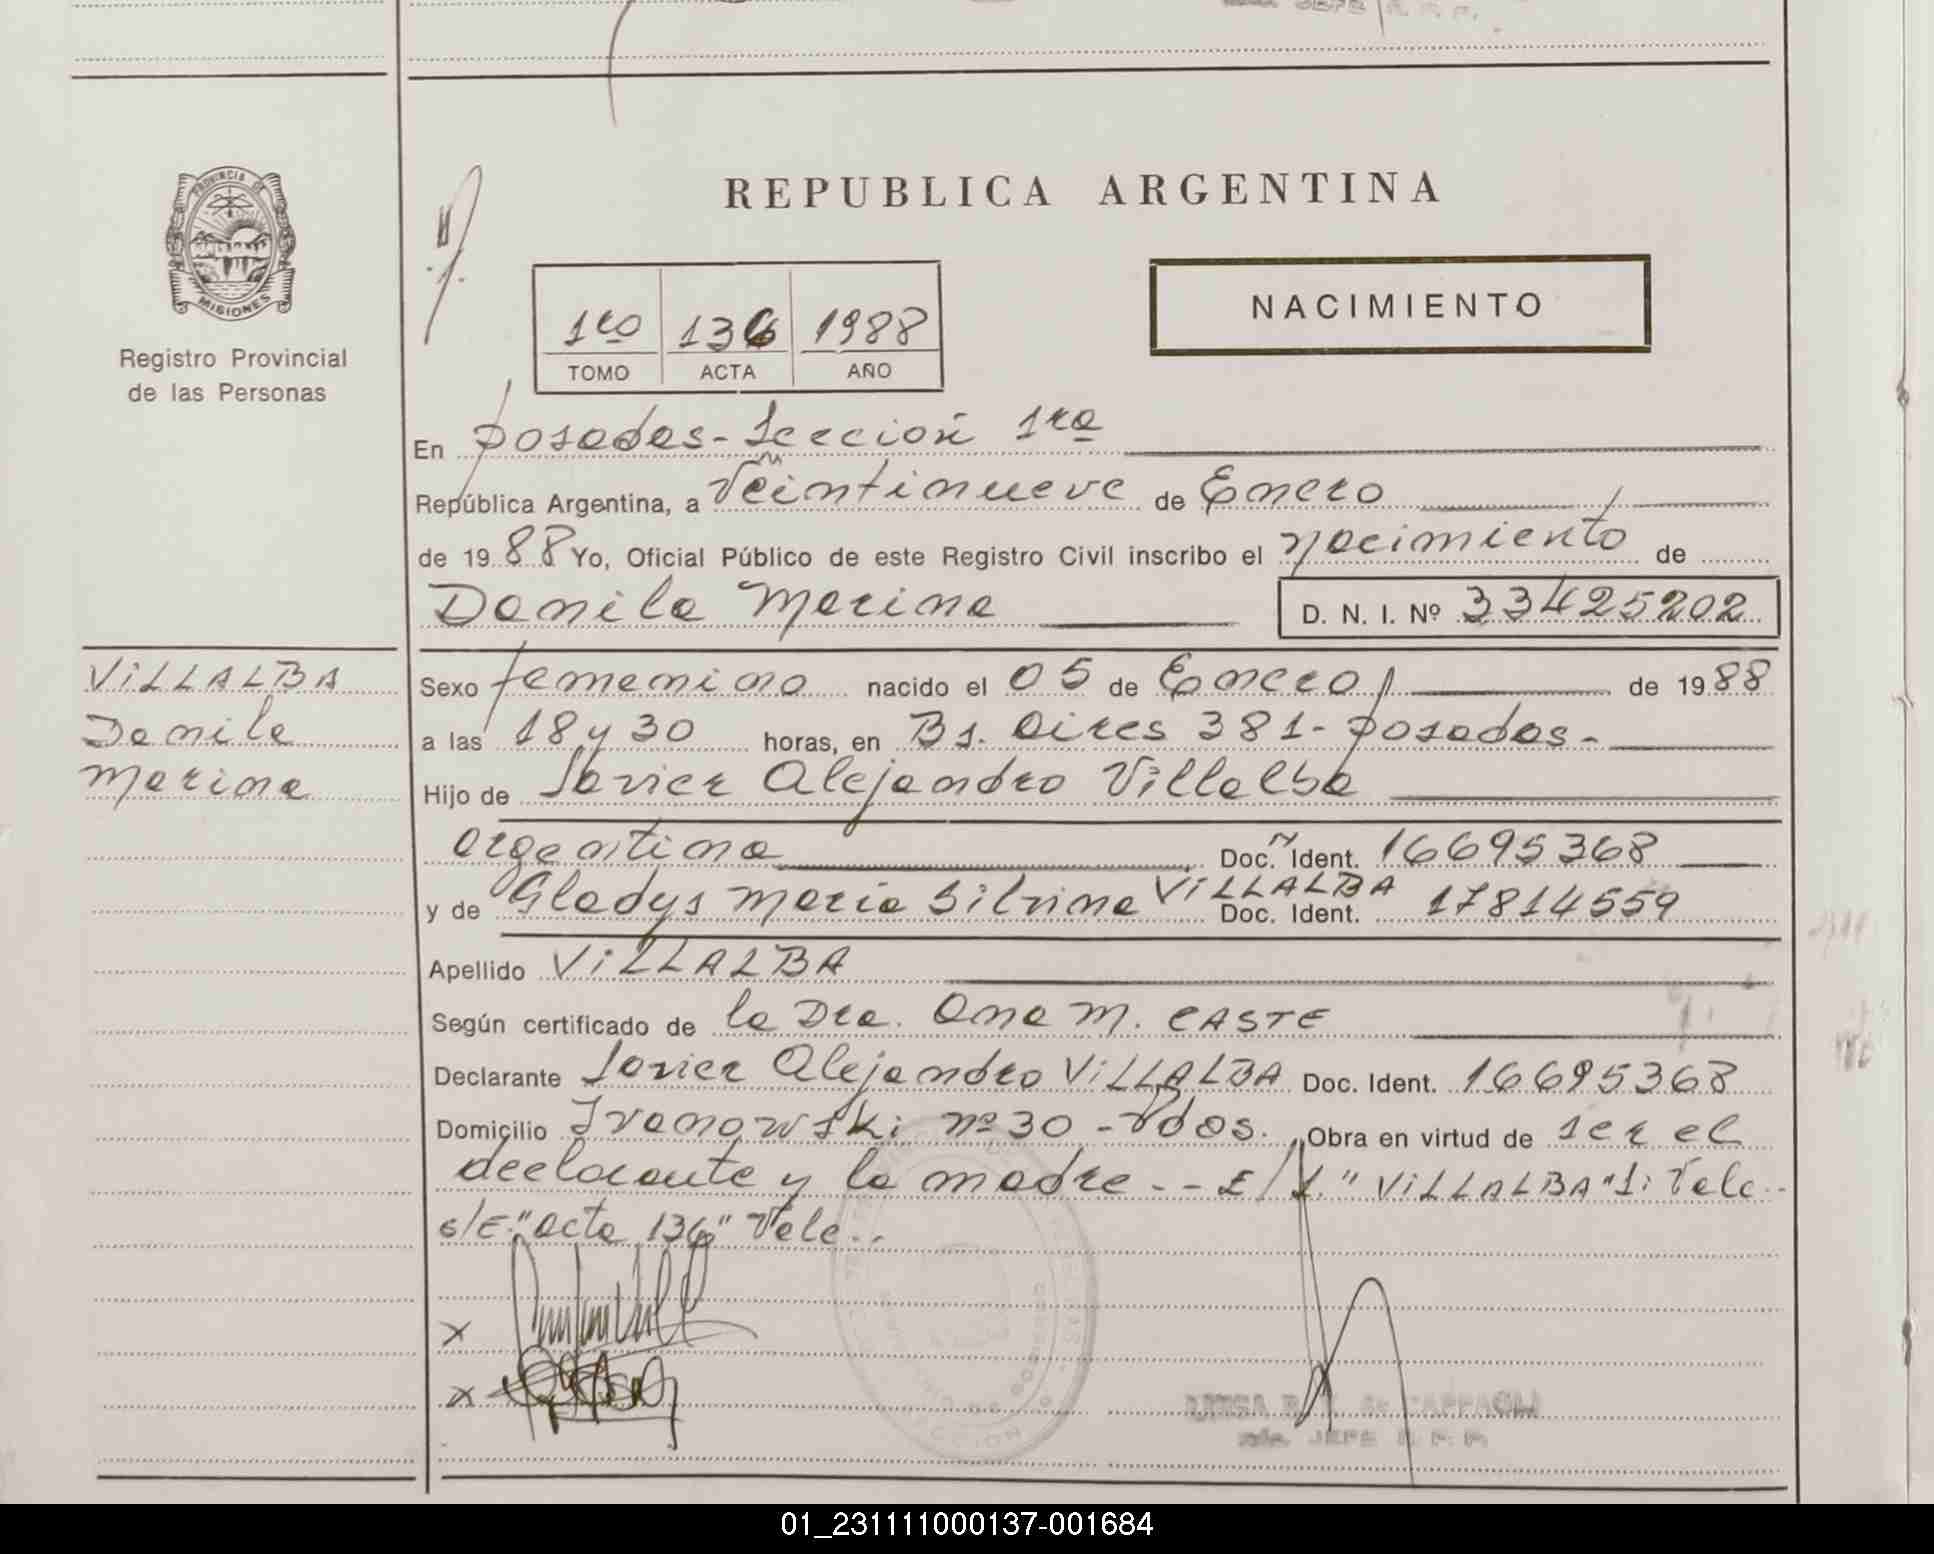 PROVINCIA DE
MISIONES
Registro Provincial
de las Personas
REPUBLICA ARGENTINA
NACIMIENTO
1ro 136 1988
TOMO ACTA AÑO
En Posadas - Sección 1ra
República Argentina, a Veintinueve de Enero
de 1988 Yo, Oficial Público de este Registro Civil inscribo el nacimiento de
Danila Marina D. N. I. Nº 33425202
VILLALBA
Danila
Marina
Sexo femenino nacido el 05 de Enero de 1988
a las 18 y 30 horas, en Bs. Aires 381 - Posadas -
Hijo de Javier Alejandro Villalba
argentina Doc. Ident. 16695368
y de Gladys María Silvina VILLALBA Doc. Ident. 17814559
Apellido VILLALBA
Según certificado de la Dra. Ana M. CASTE
Declarante Javier Alejandro VILLALBA Doc. Ident. 16695368
Domicilio Ivanowski nº 30 - Pdas. Obra en virtud de ser el
declarante y la madre. - - E/L. "VILLALBA" S: Vale. -
S/E. "acta 136" Vale. . .
x
x
JEFE R. P. P.
01_231111000137-001684